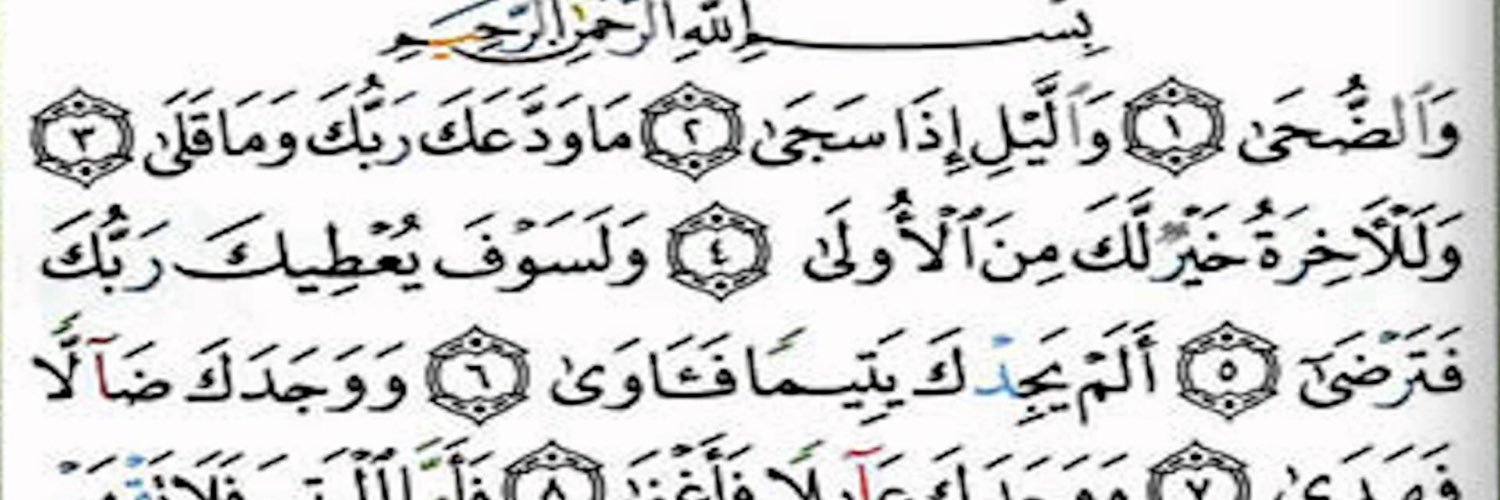 بِسْمِ اللَّهِ الرَّحْمَٰنِ الرَّحِيمِ
وَٱلضُّحَىٰ ١ وَٱلَّيْلِ إِذَا سَجَىٰ ٢ مَا وَدَّعَكَ رَبُّكَ وَمَا قَلَىٰ ٣
وَلَلْـَٔاخِرَةُ خَيْرٌ لَّكَ مِنَ ٱلْأُولَىٰ ٤ وَلَسَوْفَ يُعْطِيكَ رَبُّكَ
فَتَرْضَىٰٓ ٥ أَلَمْ يَجِدْكَ يَتِيمًا فَـَٔاوَىٰ ٦ وَوَجَدَكَ ضَآلًّا
فَهَدَىٰ ٧ وَوَجَدَكَ عَآئِلًا فَأَغْنَىٰ ٨ فَأَمَّا ٱلْيَتِيمَ فَلَا تَقْهَرْ